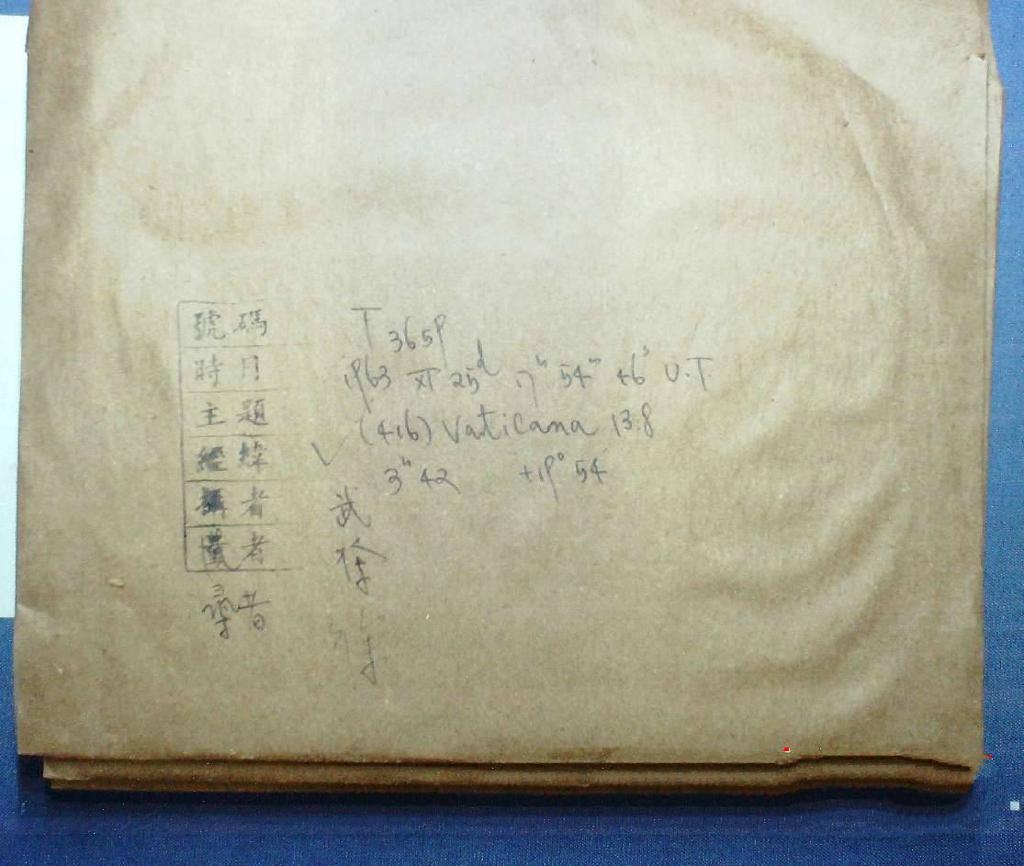 號碼 T 3659
時月 1963 XI 25ᵈ 17ʰ 54ᵐ 46ˢ U.T
主題 (416) Vaticana 13.8
經緯 √ 3ʰ 42 +19° 54
攝者 武
量者 徐
尋者